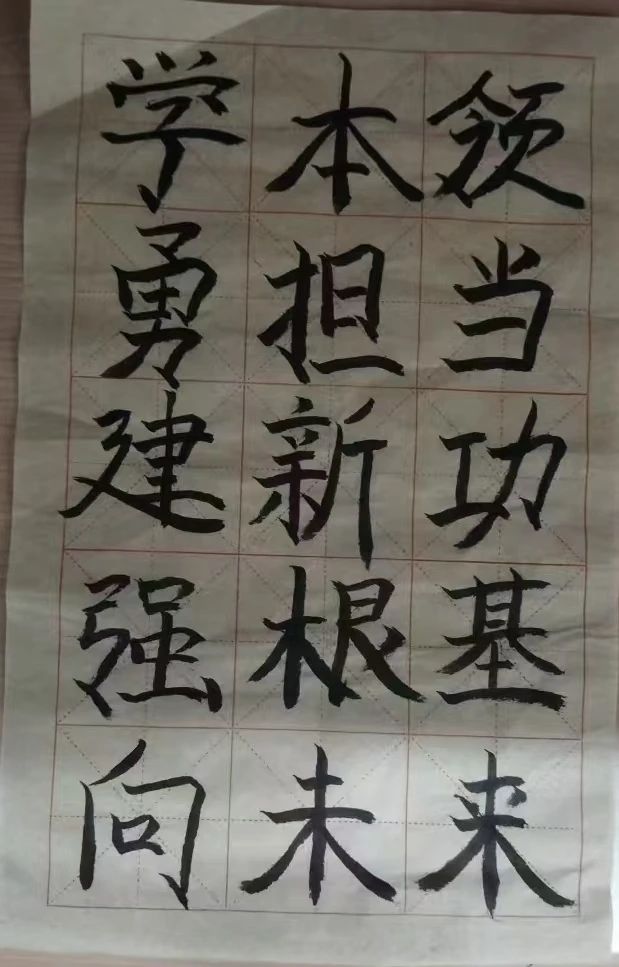 学本领
勇担当
建新功
强根基
向未来